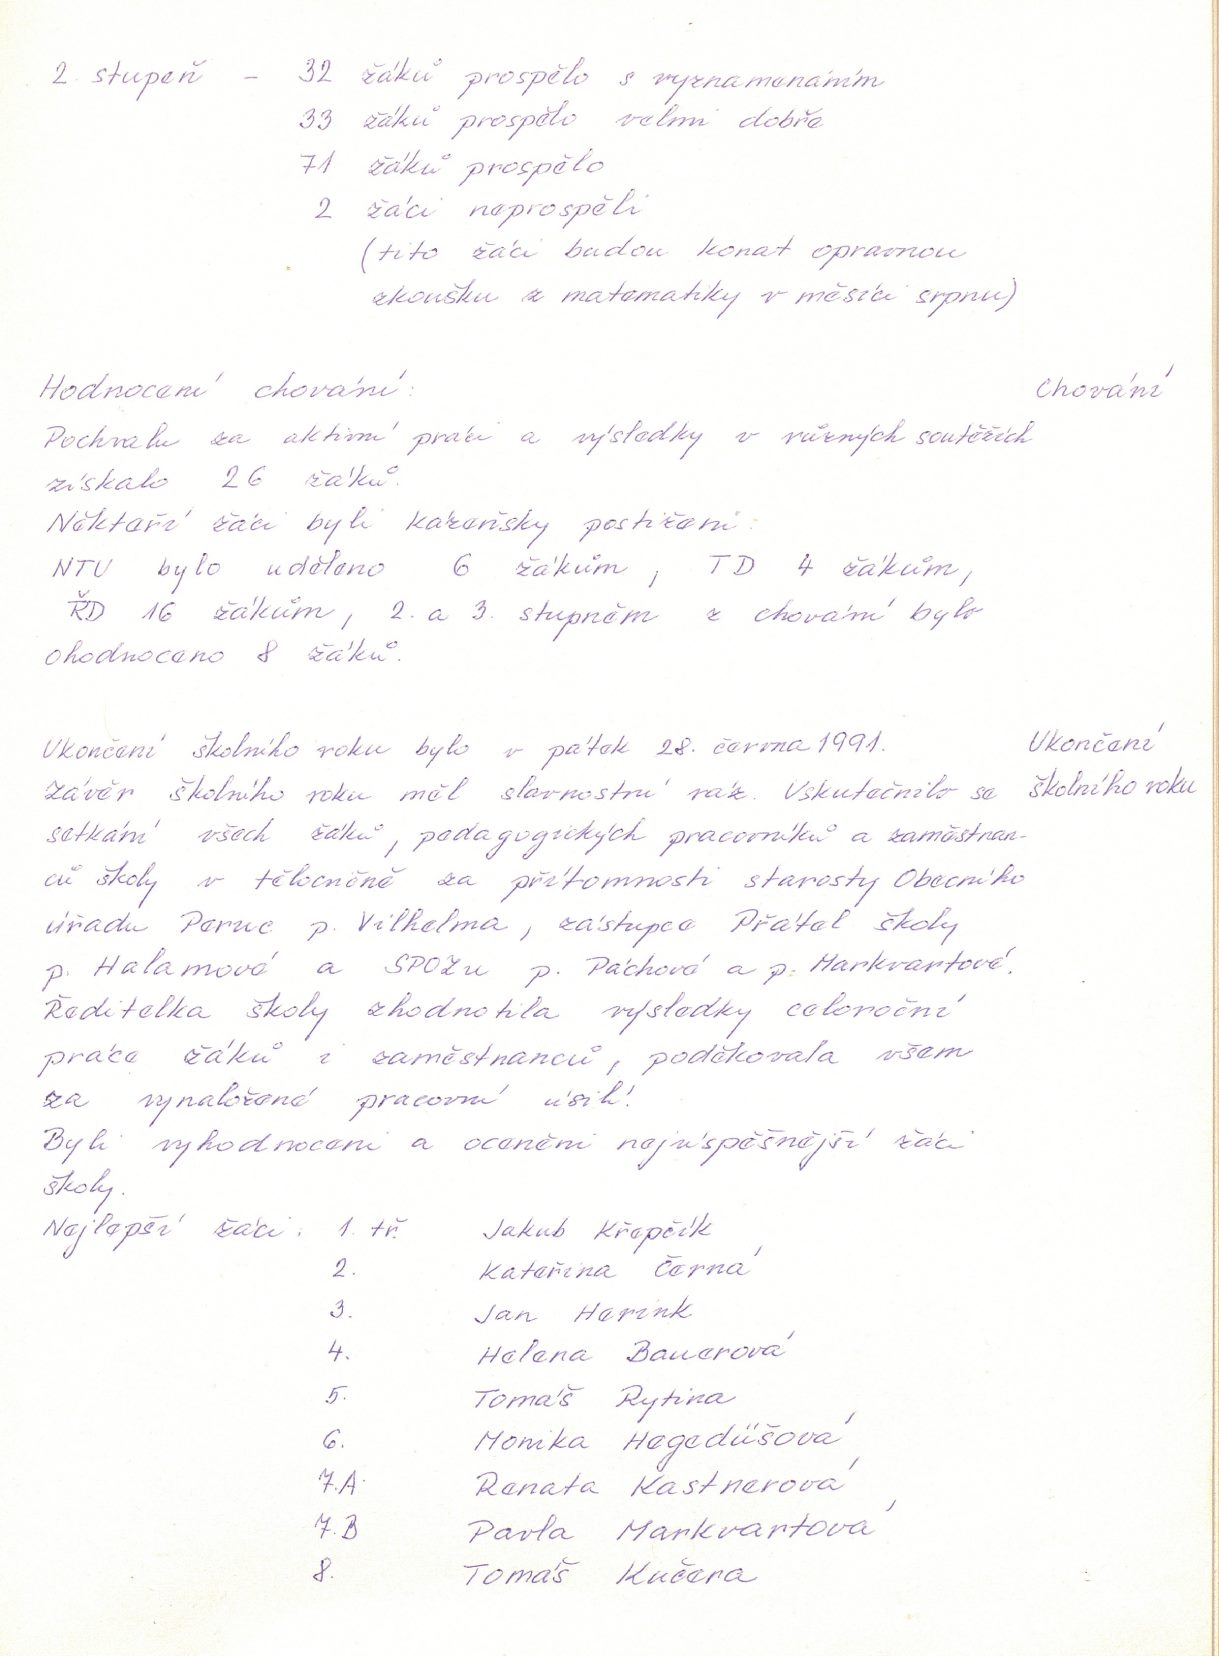 2. stupeň - 32 žáků prospělo s vyznamenáním
33 žáků prospělo velmi dobře
71 žáků prospělo
2 žáci neprospěli
(tito žáci budou konat opravnou
zkoušku z matematiky v měsíci srpnu)
Hodnocení chování:
Chování
Pochvalu za aktivní práci a výsledky v různých soutěžích
získalo 26 žáků.
Někteří žáci byli kázeňsky postiženi:
NTU bylo uděleno 6 žákům, TD 4 žákům,
ŘD 16 žákům, 2. a 3. stupněm z chování bylo
ohodnoceno 8 žáků.
Ukončení školního roku bylo v pátek 28. června 1991.
Ukončení
školního roku
Závěr školního roku měl slavnostní ráz. Uskutečnilo se
setkání všech žáků, pedagogických pracovníků a zaměstnan-
ců školy v tělocvičně za přítomnosti starosty Obecního
úřadu Peruc p. Vilhelma, zástupce Přátel školy
p. Halamové a SPOZu p. Páchové a p. Markvartové.
Ředitelka školy zhodnotila výsledky celoroční
práce žáků i zaměstnanců, poděkovala všem
za vynaložené pracovní úsilí.
Byli vyhodnoceni a oceněni nejúspěšnější žáci
školy.
Nejlepší žáci: 1. tř. Jakub Křepčík
2. Kateřina Černá
3. Jan Herink
4. Helena Bauerová
5. Tomáš Rytina
6. Monika Hegedüšová
7.A Renata Kastnerová
7.B Pavla Markvartová
8. Tomáš Kučera